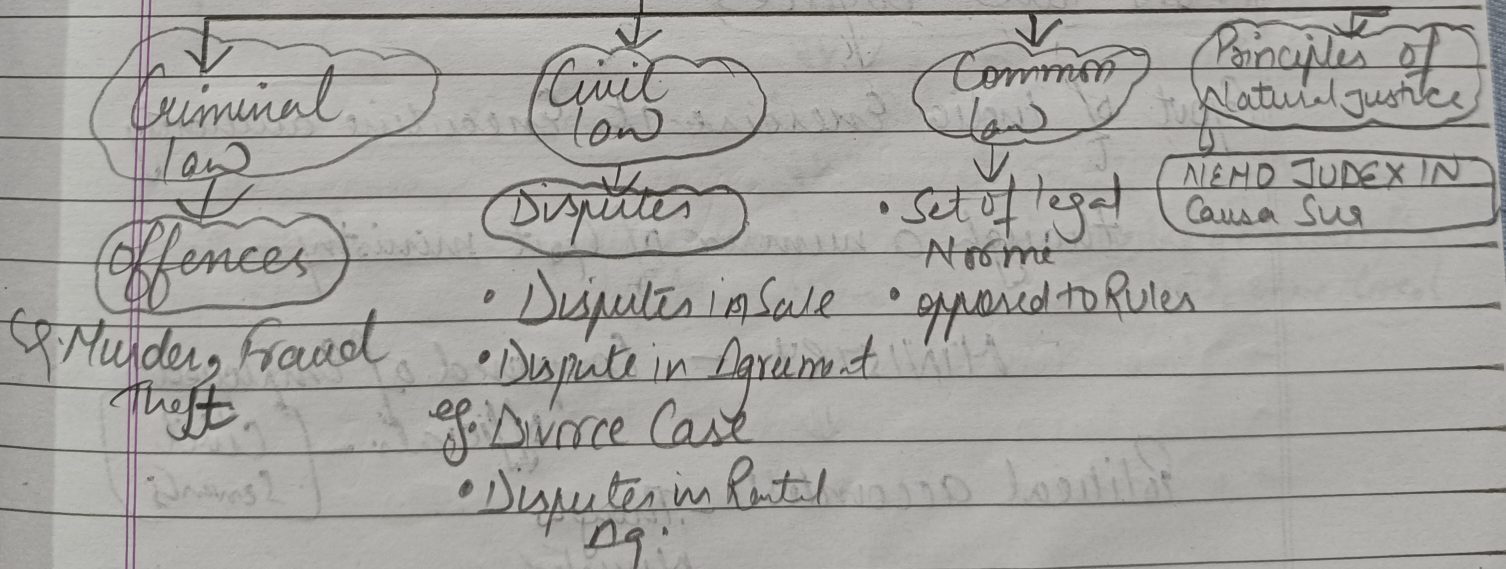 Criminal
law
Offences
eg. Murder, Fraud
Theft.
Civil
law
Disputes
• Disputes in Sale
• Dispute in Agreement
eg. Divorce Case
• Disputes in Rental
Ag.
Common
law
• Set of legal
Norms
• opposed to Rules
Principles of
Natural justice
NEMO JUDEX IN
Causa Sua